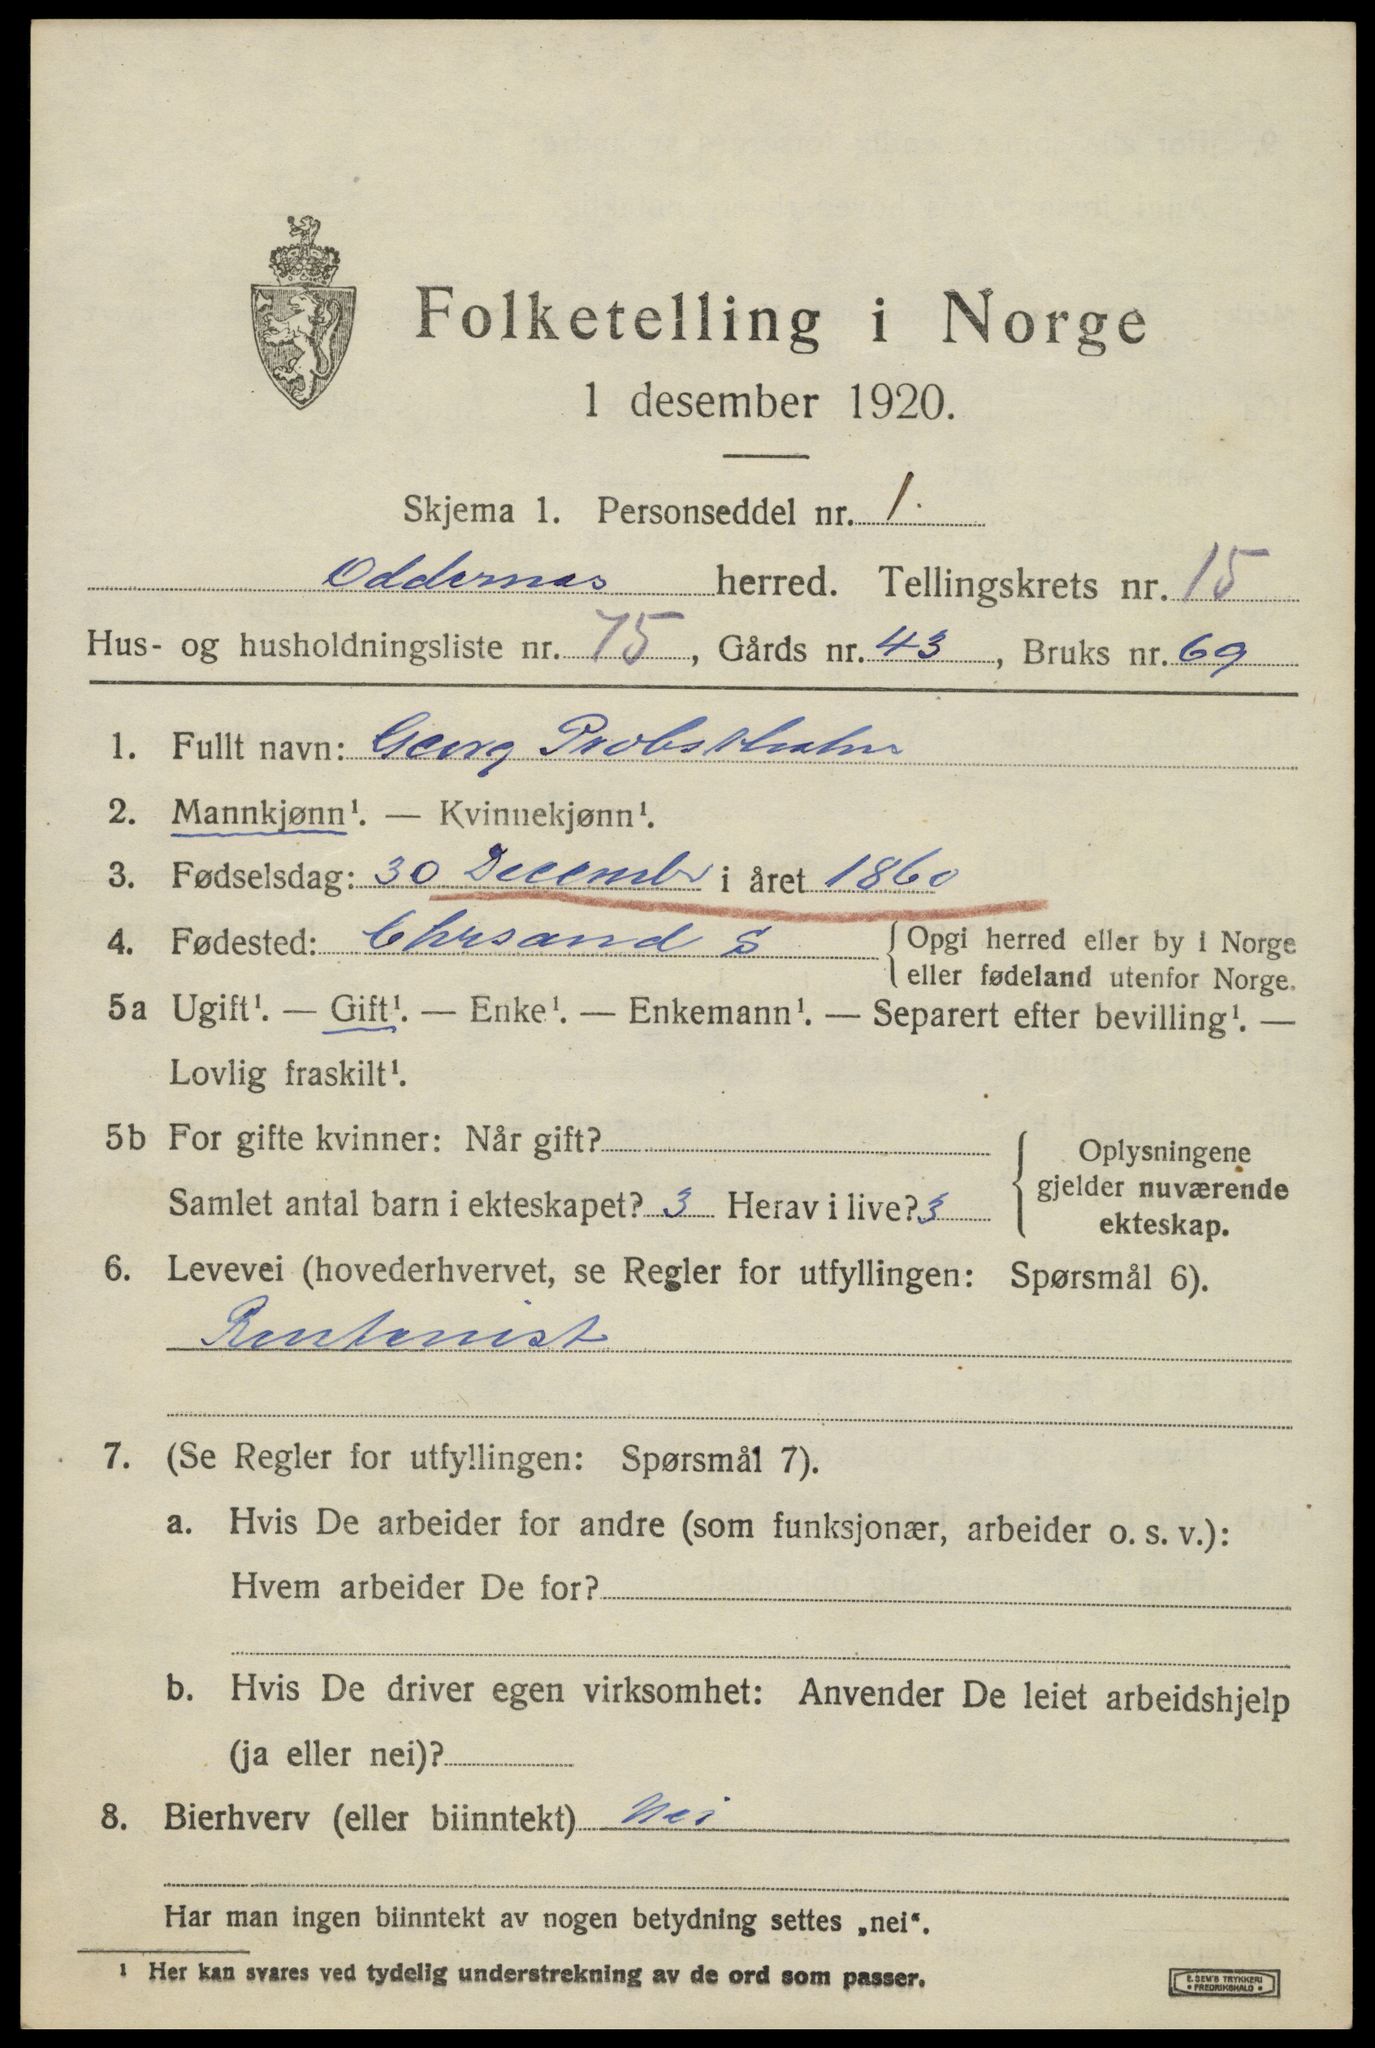 Folketelling i Norge
1 desember 1920.
Skjema 1. Personseddel nr. 1.
Oddernes herred. Tellingskrets nr. 15
Hus- og husholdningsliste nr. 75, Gårds nr. 43, Bruks nr. 69
1. Fullt navn: Georg Probsthahn
2. Mannkjønn¹. — Kvinnekjønn¹.
3. Fødselsdag: 30 December i året 1860
4. Fødested: Chrsand S { Opgi herred eller by i Norge
eller fødeland utenfor Norge.
5a Ugift¹. — Gift¹. — Enke¹. — Enkemann¹. — Separert efter bevilling¹. —
Lovlig fraskilt¹.
5b For gifte kvinner: Når gift?
Samlet antal barn i ekteskapet? 3 Herav i live? 3
{ Oplysningene
gjelder nuværende
ekteskap.
6. Levevei (hovederhvervet, se Regler for utfyllingen: Spørsmål 6).
Rentenist
7. (Se Regler for utfyllingen: Spørsmål 7).
a. Hvis De arbeider for andre (som funksjonær, arbeider o. s. v.):
Hvem arbeider De for?
b. Hvis De driver egen virksomhet: Anvender De leiet arbeidshjelp
(ja eller nei)?
8. Bierhverv (eller biinntekt) Nei
Har man ingen biinntekt av nogen betydning settes „nei“.
¹ Her kan svares ved tydelig understrekning av de ord som passer.
E. SEM'S TRYKKERI
• FREDRIKSHALD •